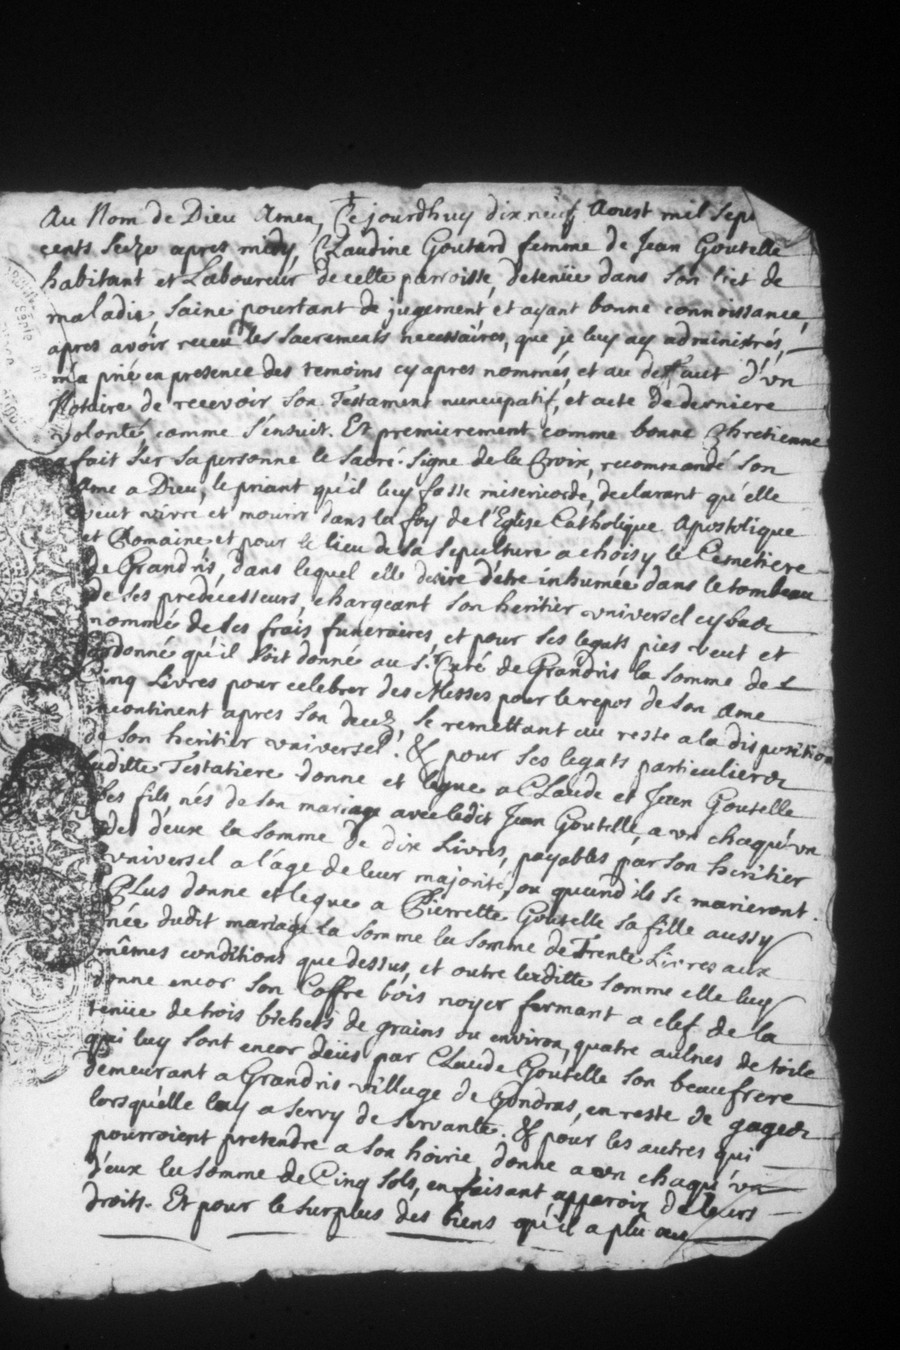 Au Nom de Dieu Amen, Ce jourdhuy dix neuf Aoust mil sept
cents Seize apres midy, Claudine Goutard femme de Jean Goutelle
habitant et Laboureur de cette parroisse, detenüe dans son lict de
maladie saine pourtant de jugement et ayant bonne connoissance,
apres avoir receu les sacrements necessaires, que je luy ay administrés,
m'a prié en presence des temoins cy apres nommés, et au deffaut d'un
Notaire de recevoir son Testament nuncupatif, et acte de derniere
volonté comme s'ensuit. Et premierement comme bonne Chretienne
a fait sur sa personne le sacré-signe de la Croix, recommandé son
Ame a Dieu, le priant qu'il luy fasse misericorde, declarant qu'elle
veut vivre et mourir dans la foy de l'Eglise Catholique Apostolique
et Romaine et pour le lieu de sa sepulture a choisy le Cemetiere
de Grandris, dans lequel elle desire d'etre inhumée dans le tombeau
de ses predecesseurs, chargeant son heritier universel cy bas
nommé de ses frais funeraires, et pour ses legats pies veut et
ordonné qu'il soit donné au Sr. Curé de Grandris la somme de
Cinq Livres pour celebrer des Messes pour le repos de son Ame
incontinent apres son decez, se remettant au reste a la disposition
de son heritier universel. & pour ses legats particuliers
laditte Testatiere donne et legue a Claude et Jean Goutelle
ses fils nés de son mariage avec ledit Jean Goutelle, a un chaqu'un
des d'eux la somme de dix Livres, payables par son heritier
universel a l'age de leur majorité, ou quand ils se marieront.
Plus donne et legue a Pierrette Goutelle sa fille aussy
née dudit mariage la somme la somme de Trente Livres aux
mêmes conditions que dessus, et outre laditte somme elle luy
donne encor son Coffre bois noyer fermant a clef de la
tenüe de trois bichets de grains ou environ, quatre aulnes de toile
qui luy sont encor deües par Claude Goutelle son beaufrere
demeurant a Grandris village de Gondras, en reste de gages
lorsqu'elle luy a servy de servante. & pour les autres qui
pourroient pretendre a son hoirie, donne a un chaqu'un
d'eux la somme de Cinq sols, en faisant apparoir de leurs
droits. Et pour le surplus des biens qu'il a plu aux